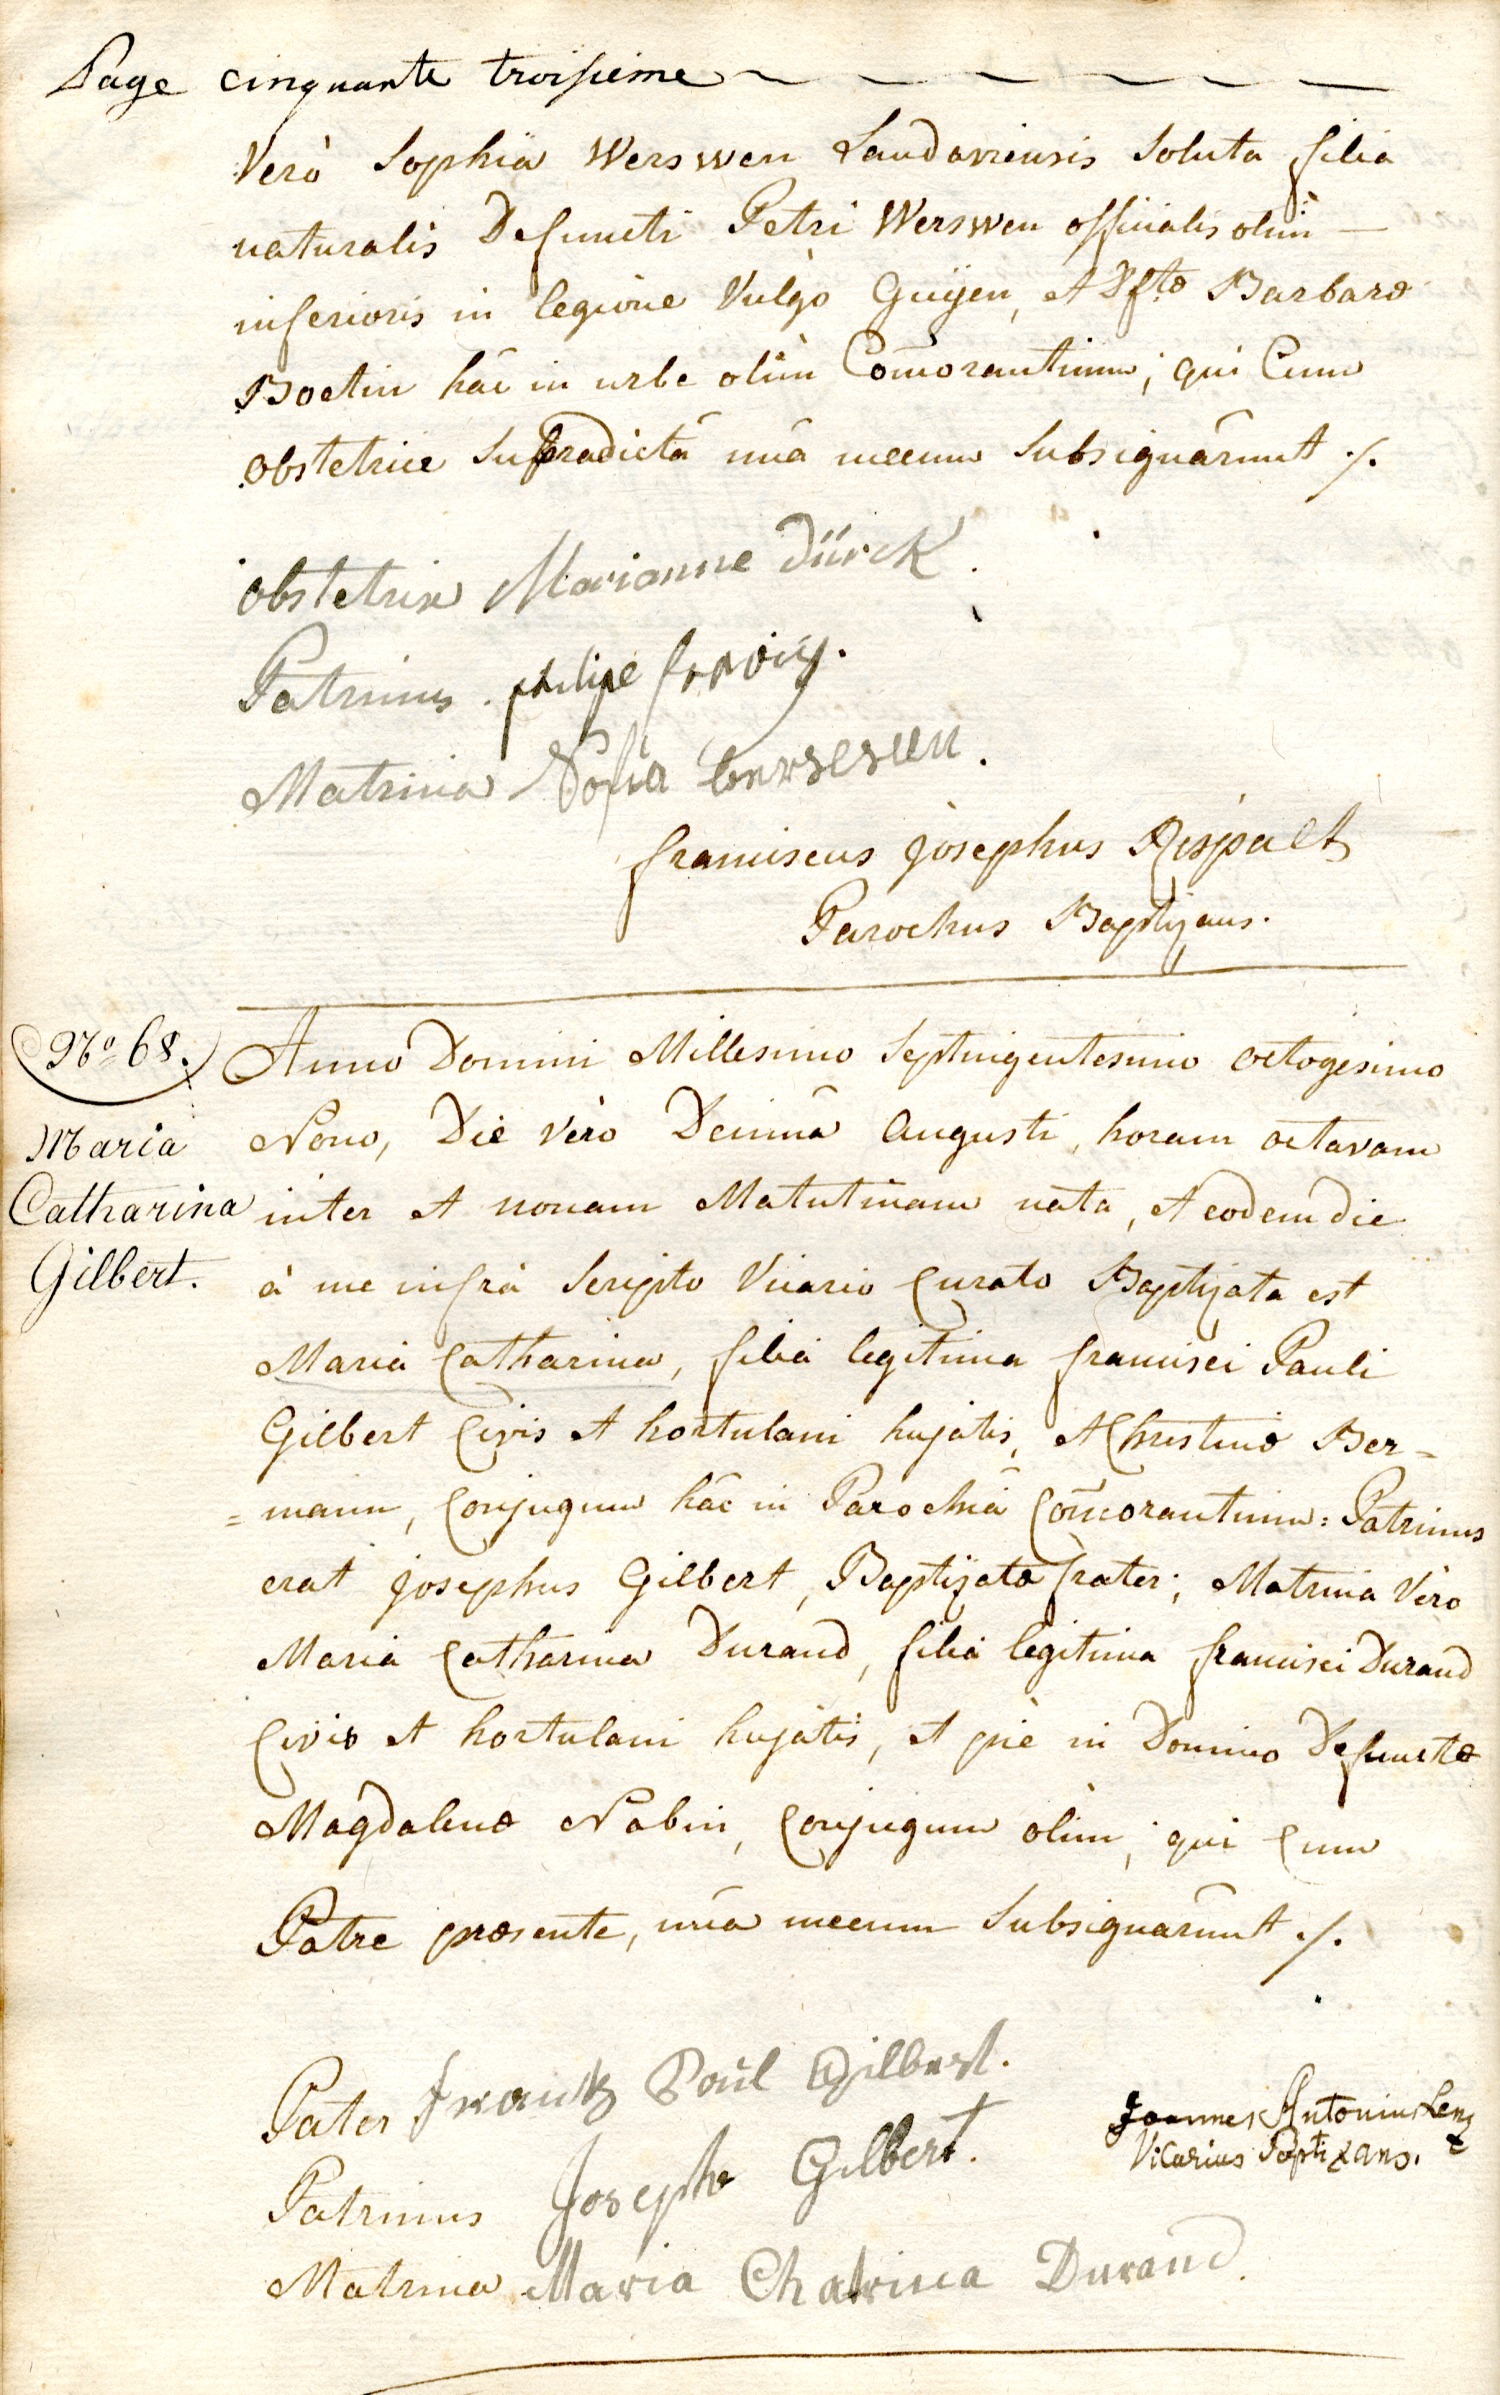 Page cinquante troisieme
Verò Sophia Werswen Landaviensis soluta filia
naturalis Defuncti Petri Werswen officialis olim
inferioris in legione Vulgò Guÿen, et Dftæ Barbaræ
Boetin hâc in urbe olim Com̄orantium; qui Cum
obstetrice supradictâ unâ mecum subsignârunt ./.
obstetrix Marianne Dürck.
Patrinus philipe
Matrina Sofia
franciscus josephus Rispalt
Parochus Baptizans.
No 68.
Maria
Catharina
Gilbert.
Anno Domini Millesimo Septingentesimo octogesimo
Nono, Die verò Decimâ Augusti, horam octavam
inter et nonam Matutinam nata, et eodem die
à me infrà scripto Vicario Curato Baptizata est
Maria Catharina, filia legitima francisci Pauli
Gilbert Civis et hortulani hujatis, et Christinæ Ber=
=mann, Conjugum hâc in Parochiâ Com̄orantium: Patrinus
erat josephus Gilbert, Baptizatæ frater; Matrina Verò
Maria Catharina Durand, filia legitima francisci Durand
Civis et hortulani hujatis, et piè in Domino Defunctæ
Magdalenæ Nabin, Conjugum olim, qui Cum
Patre præsente, unâ mecum subsignârunt ./.
Pater Frantz Paul Gilbert.
Patrinus Joseph Gilbert.
Matrina Maria Chatrina Durand.
Joannes Antonius Lenz
Vicarius Baptizans.